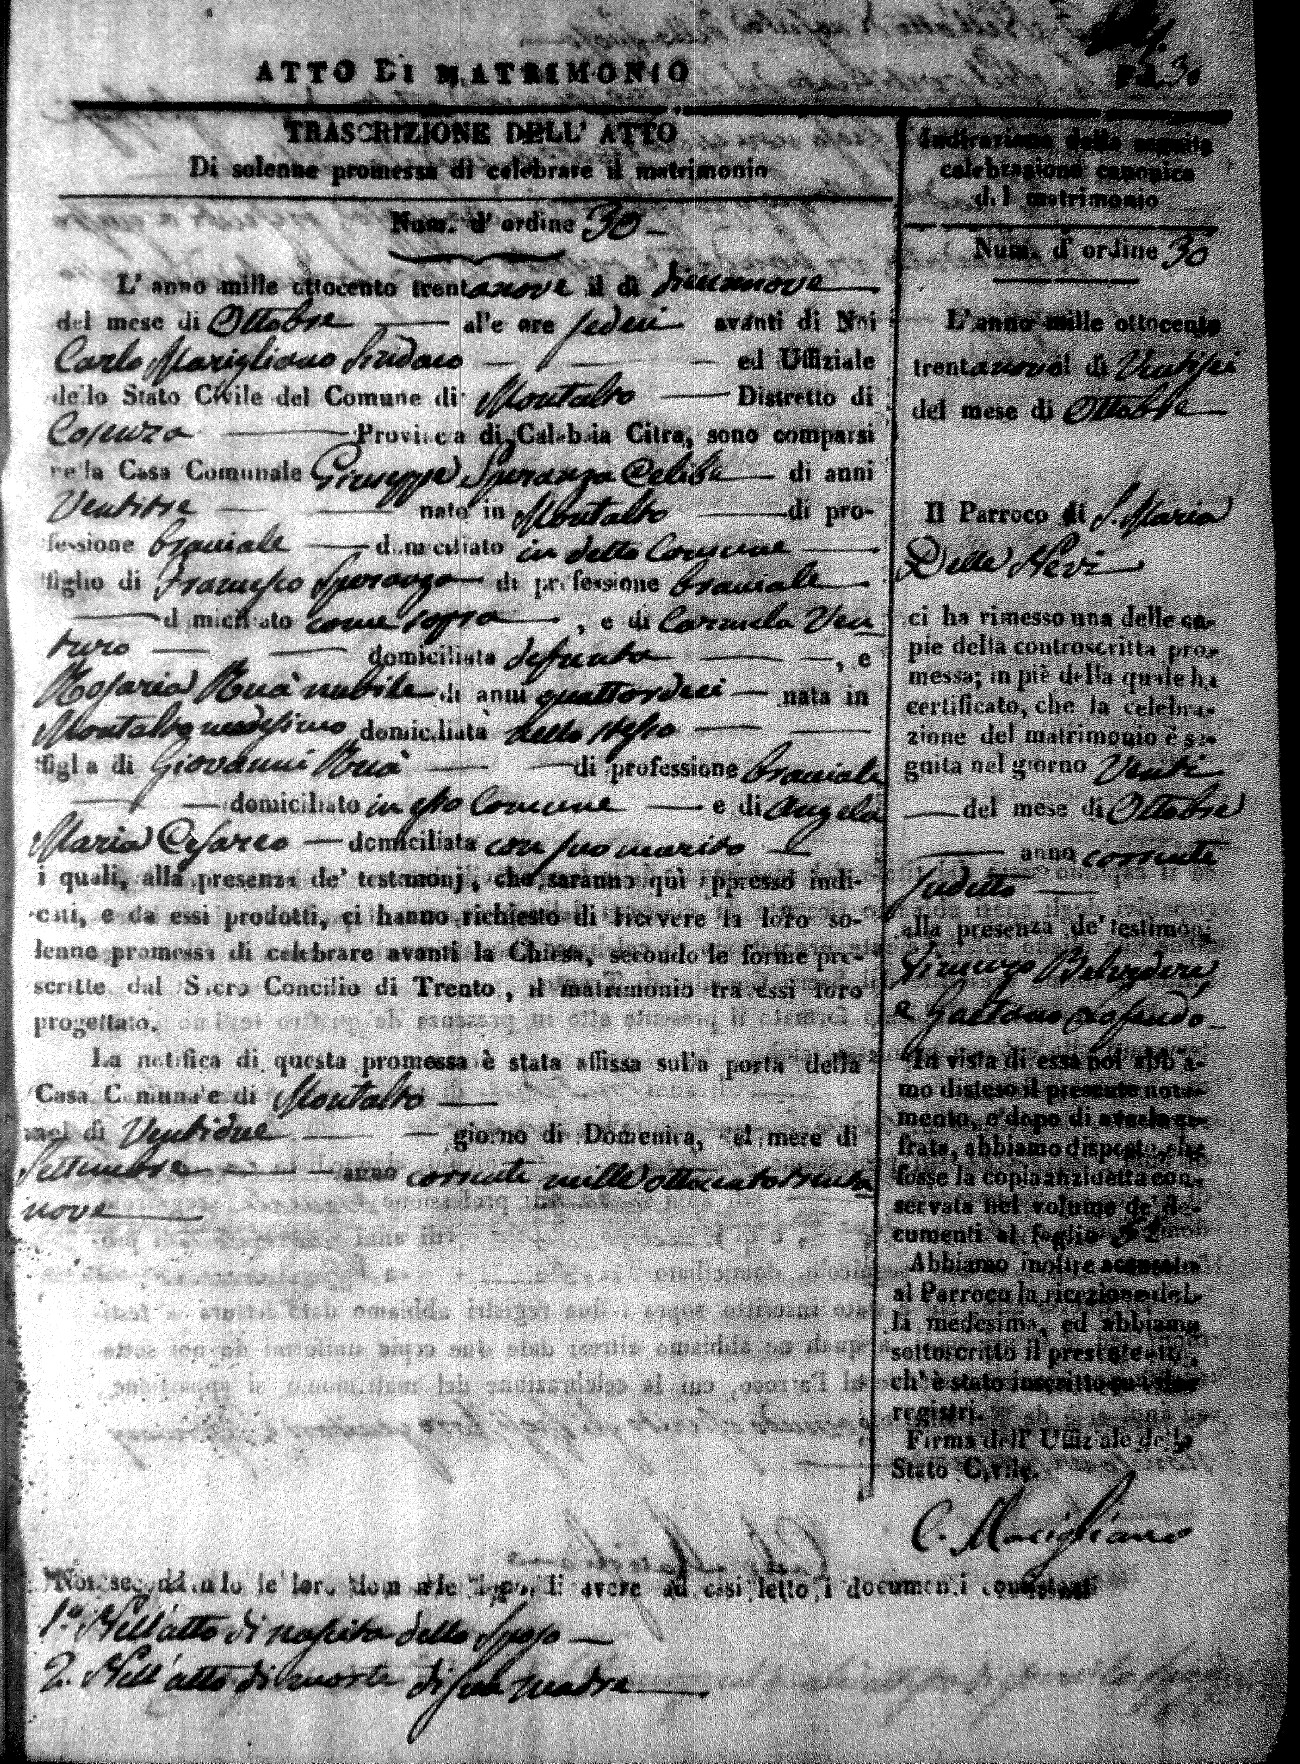 ATTO DI MATRIMONIO
TRASCRIZIONE DELL' ATTO
Di solenne promessa di celebrare il matrimonio
Num. d' ordine 30
L' anno mille ottocento trentanove il dì diecinnove
del mese di Ottobre alle ore sedeci avanti di Noi
Carlo Marigliano Sindaco ed Uffiziale
dello Stato Civile del Comune di Montalto Distretto di
Cosenza Provincia di Calabria Citra, sono comparsi
nella Casa Comunale Giuseppe Speranza Celibe di anni
Ventitre nato in Montalto di pro-
fessione bracciale domiciliato in detto Comune
figlio di Francesco Speranza di professione bracciale
domiciliato come sopra, e di Carmela Ven
turo domiciliata defunta, e
Rosaria Ruà nubile di anni quattordeci nata in
Montalto medesimo domiciliata nello stesso
figlia di Giovanni Ruà di professione bracciale
domiciliato in esso Comune e di Angela
Maria Cesareo domiciliata con suo marito
i quali, alla presenza de' testimonj, che saranno quì appresso indi-
cati, e da essi prodotti, ci hanno richiesto di ricevere la loro so-
lenne promessa di celebrare avanti la Chiesa, secondo le forme pre-
scritte dal Sacro Concilio di Trento, il matrimonio tra essi loro
progettato.
La notifica di questa promessa è stata affissa sulla porta della
Casa Comunale di Montalto
nel dì Ventidue giorno di Domenica, del mese di
Settembre anno corrente mille ottocentotrenta
nove
Indicazione della seguita
celebrazione canonica
del matrimonio
Num. d' ordine 30
L'anno mille ottocento
trentanove il dì Ventisei
del mese di Ottobre
Il Parroco di S. Maria
Della Nevi
ci ha rimesso una delle co-
pie della controscritta pro-
messa; in piè della quale ha
certificato, che la celebra-
zione del matrimonio è se-
guita nel giorno Venti
del mese di Ottobre
anno corrente
sudetto
alla presenza de' testimonj
Vincenzo Belvedere
e Gaetano
In vista di essa noi abbia-
mo disteso il presente nota-
mento, e dopo di averla ci-
frata, abbiamo disposto, che
fosse la copia anzidetta con-
servata nel volume de' do-
cumenti al foglio 52
Abbiamo inoltre accusato
al Parroco la ricezione del-
la medesima, ed abbiamo
sottoscritto il presente atto,
ch' è stato inscritto su i due
registri.
Firma dell' Uffiziale dello
Stato Civile.
C. Marigliano
Noi secondando le loro domande dopo di avere ad essi letto i documenti consistenti
1.° Nell'atto di nascita dello Sposo
2. Nell'atto di morte di sua madre